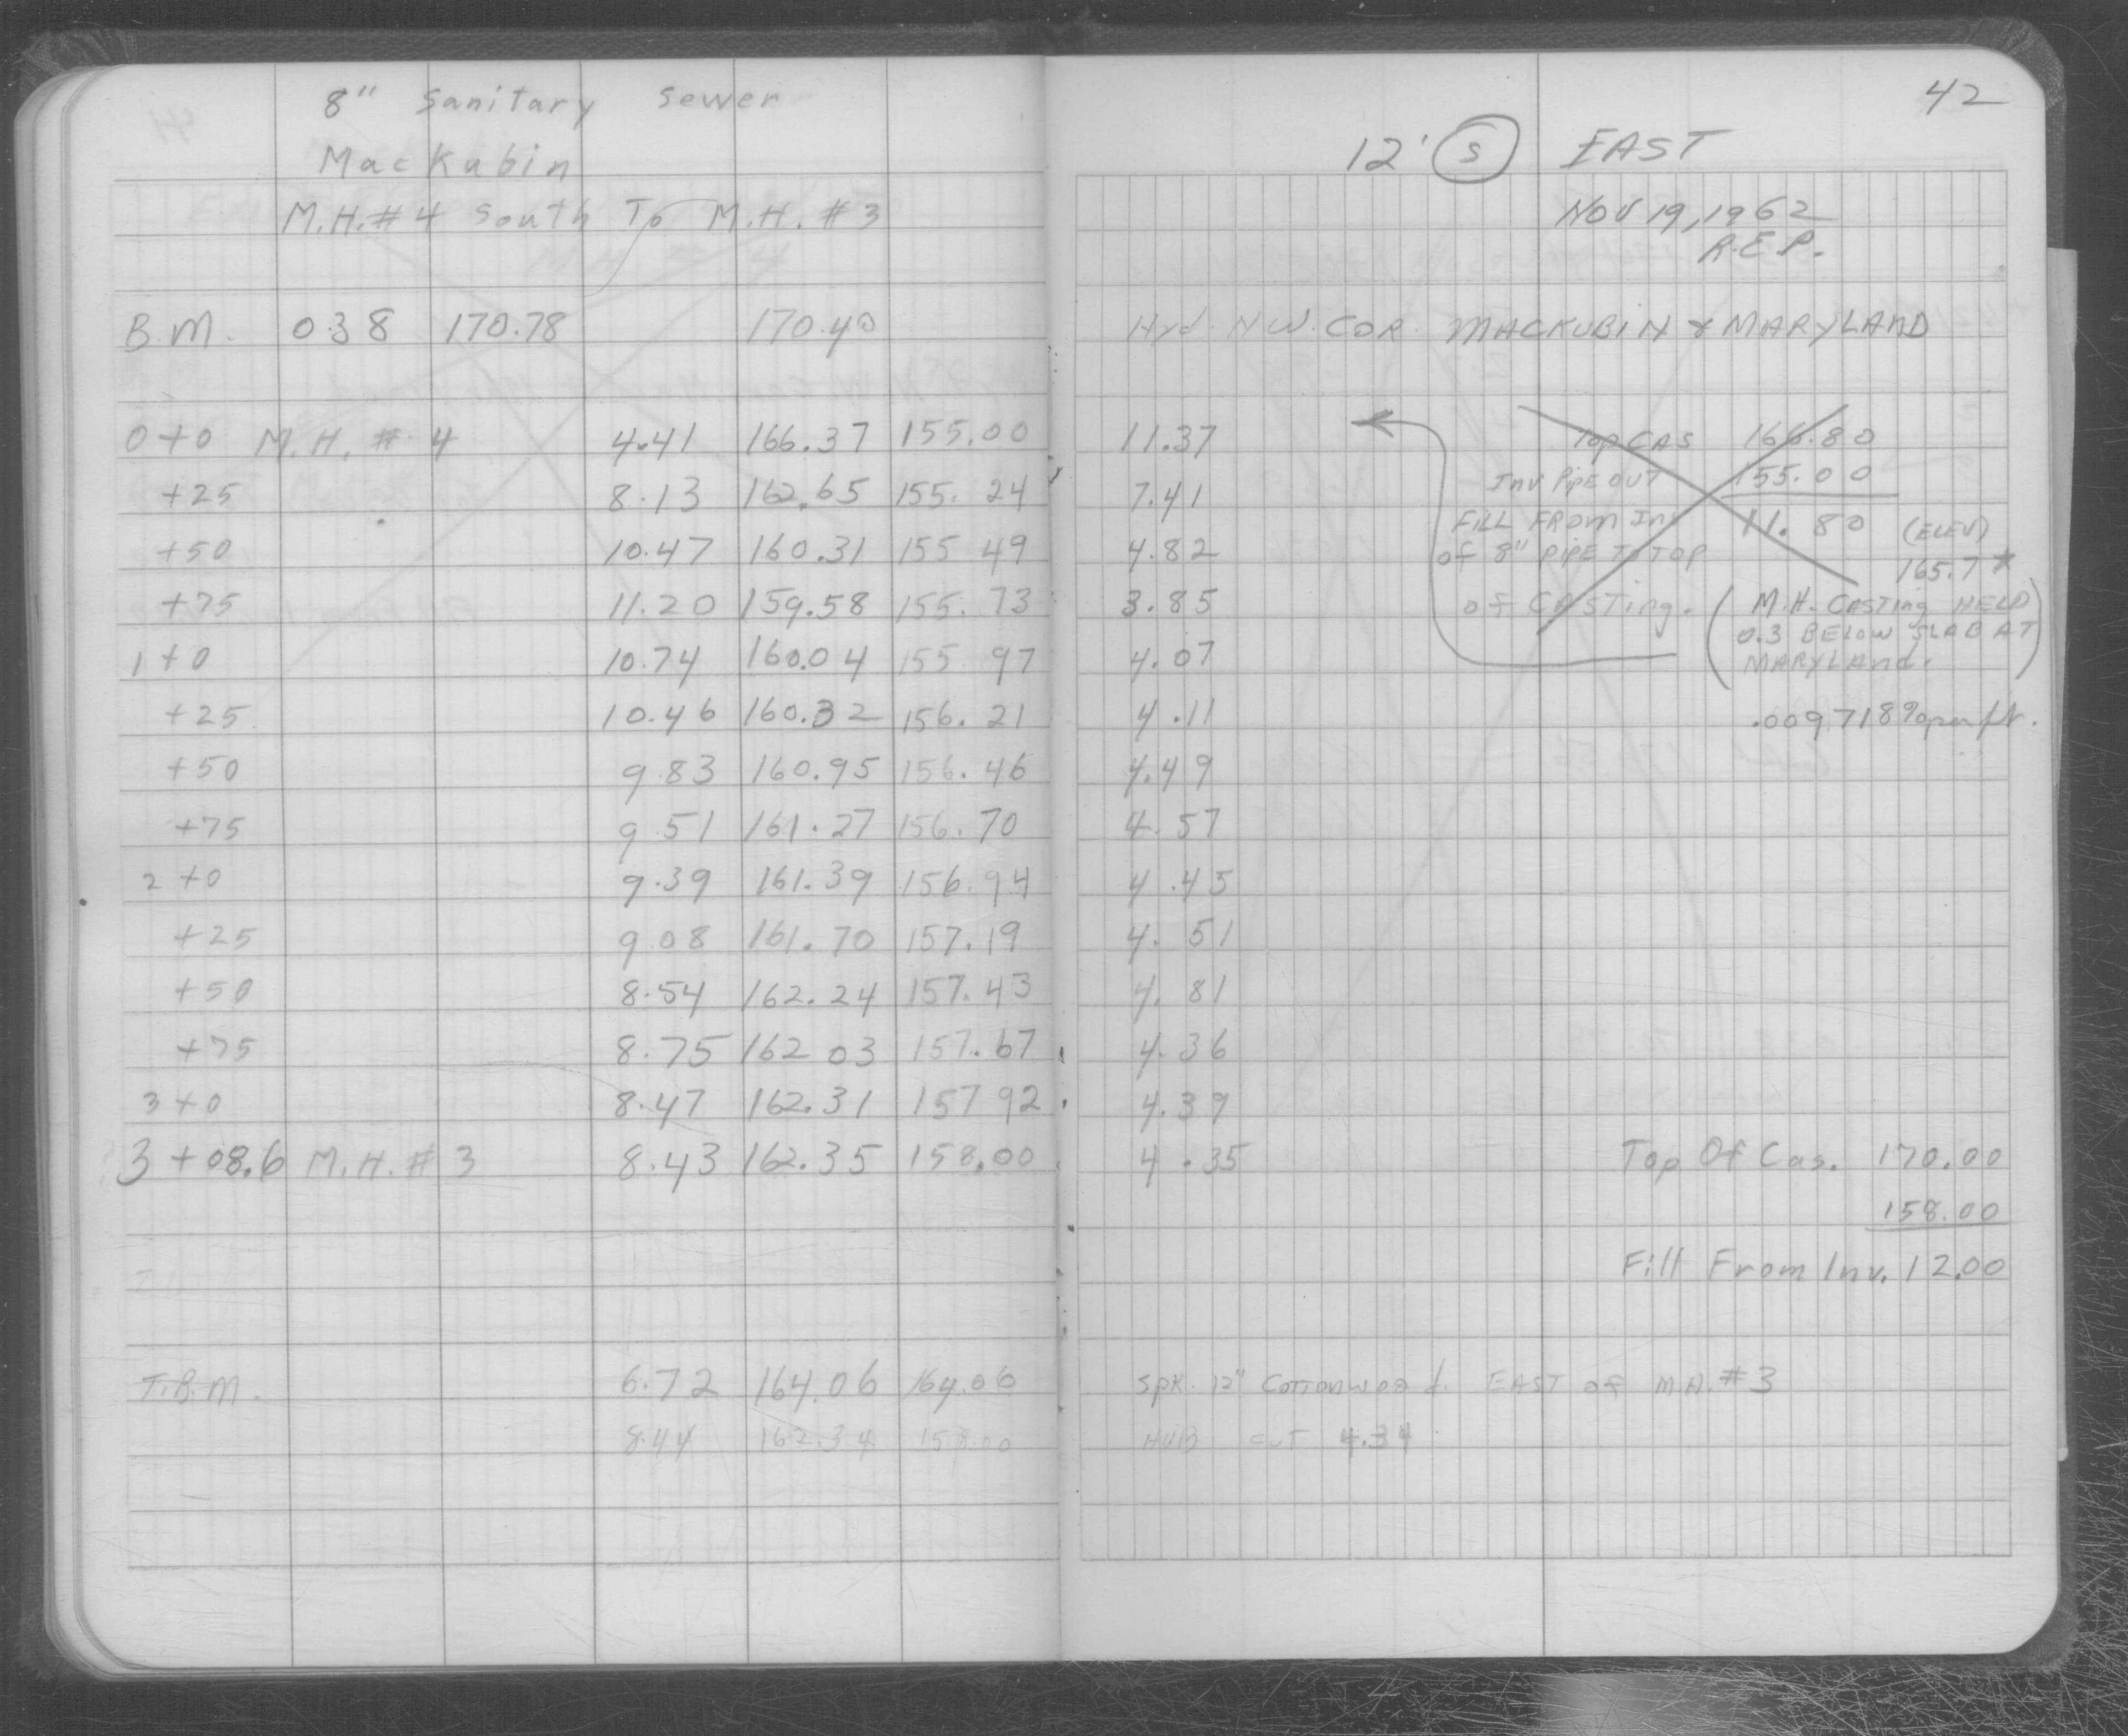 8" Sanitary Sewer
Mackubin
M.H.#4 South To M.H. #3
B.M. 0.38 170.78 170.40
0+0 M.H. #4 4.41 166.37 155.00
+25 8.13 162.65 155.24
+50 10.47 160.31 155 49
+75 11.20 159.58 155.73
1+0 10.74 160.04 155 97
+25 10.46 160.32 156.21
+50 9.83 160.95 156.46
+75 9.51 161.27 156.70
2+0 9.39 161.39 156.94
+25 9.08 161.70 157.19
+50 8.54 162.24 157.43
+75 8.75 162 03 157.67
3+0 8.47 162.31 157 92
3+08.6 M.H.#3 8.43 162.35 158.00
T.B.M. 6.72 164.06 164.06
8.44 162.34 158.00
42
12' S EAST
NOV 19, 1962
R.E.P.
Hyd. N.W. COR. MACKUBIN & MARYLAND
11.37 Top CAS 166.80
7.41 INV PIPE OUT 155.00
4.82 FILL FROM INV 11.80 (ELEV)
of 8" PIPE TO TOP 165.7*
3.85 of CASTing. (M.H. CASTing HELD
0.3 BELOW SLAB AT
4.07 MARYLAnd.)
4.11 .0097189 per ft.
4.49
4.57
4.45
4.51
4.81
4.36
4.39
4.35 Top Of Cas. 170.00
158.00
Fill From Inv. 12.00
SPK. 12" COTTONWOOD. EAST of M.H.#3
HUB CUT 4.34